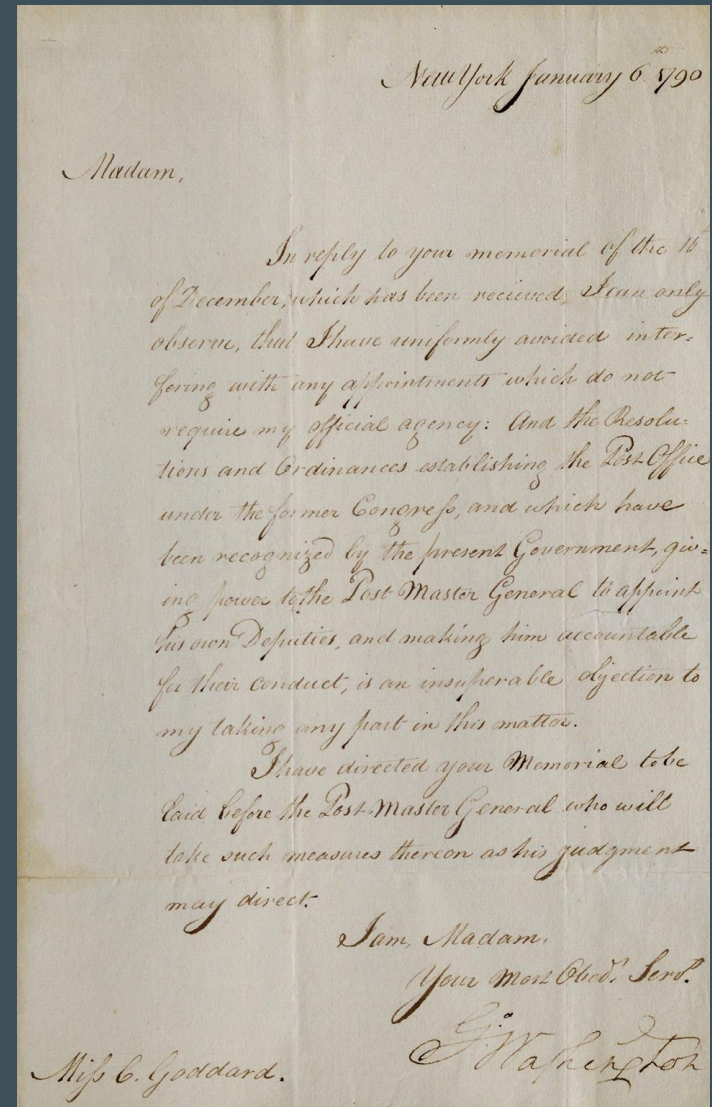 New York January 6th 1790
Madam,
In reply to your memorial of the
of December, which has been recieved, I can only
observe, that I have uniformly avoided inter-
fering with any appointments which do not
require my official agency: And the Resolu-
tions and Ordinances establishing the Post Office
under the former Congress, and which have
been recognized by the present Government, giv=
ing power to the Post Master General to appoint
his own Deputies, and making him accountable
for their conduct, is an insuperable objection to
my taking any part in this matter.
I have directed your Memorial to be
laid before the Post-Master General who will
take such measures thereon as his judgment
may direct.
I am, Madam,
Your Most Obedt. Servt.
G. Washington
Miss C. Goddard.